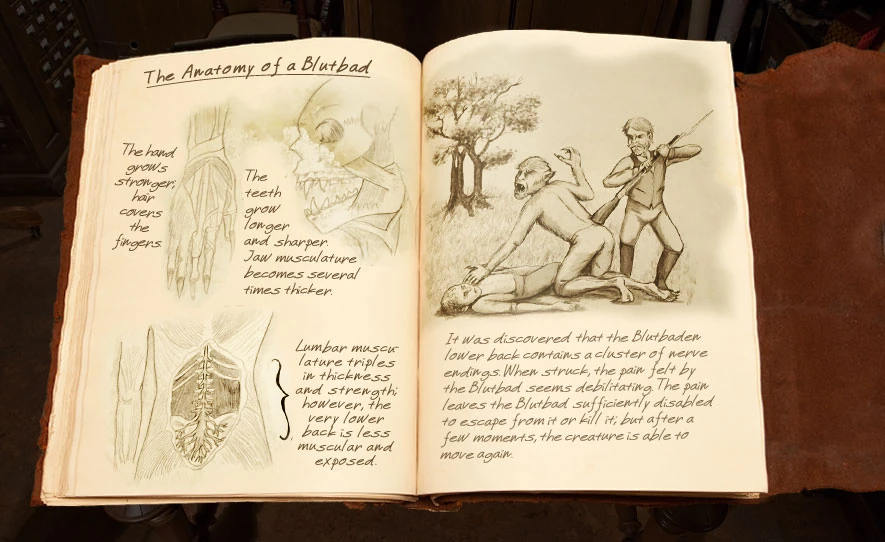 The Anatomy of a Blutbad
The hand
grows
stronger;
hair
covers
the
fingers.
The
teeth
grow
longer
and sharper.
Jaw musculature
becomes several
times thicker.
Lumbar muscu-
lature triples
in thickness
and strength;
however, the
very lower
back is less
muscular and
exposed.
It was discovered that the Blutbaden
lower back contains a cluster of nerve
endings. When struck, the pain felt by
the Blutbad seems debilitating. The pain
leaves the Blutbad sufficiently disabled
to escape from it or kill it; but after a
few moments, the creature is able to
move again.